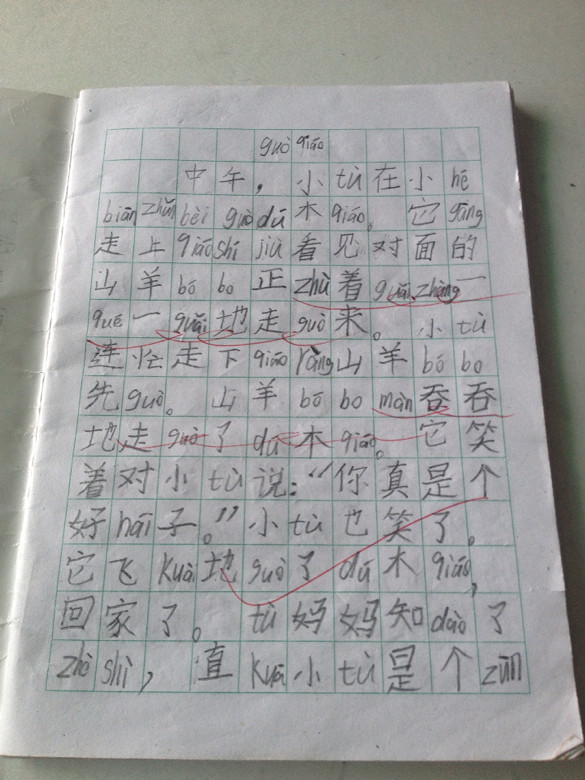 guò qiáo
中午，小tù在小hé
biān zhǔn bèi guò dú木qiáo。它gāng
走上qiáo shí jiù看见对面的
山羊bó bo正zhǔ着guǎi zhàng一
qué一guǎi地走guò来。小tù
连忙走下qiáo ràng山羊bó bo
先guò。山羊bó bo màn吞吞
地走guò了dú木qiáo。它笑
着对小tù说：“你真是个
好hái子。”小tù也笑了。
它飞kuài地guò了dú木qiáo，
回家了。tù妈妈知dào了
zhè shì，直kuā小tù是个zūn